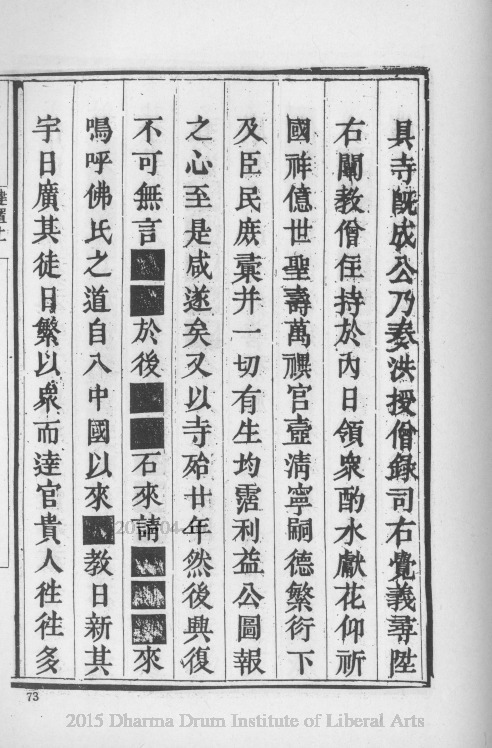 具寺既成公乃奏洪授僧錄司右覺義尋陞
右闡教僧住持於內日領衆酌水獻花仰祈
國祚億世聖壽萬禩宮壼清寧嗣德繁衍下
及臣民庶彙并一切有生均霑利益公圖報
之心至是咸遂矣又以寺殆廿年然後興復
不可無言■■於後■■石來請■■■來
嗚呼佛氏之道自入中國以來■教日新其
宇日廣其徒日繁以衆而達官貴人徃徃多
73
2015 Dharma Drum Institute of Liberal Arts